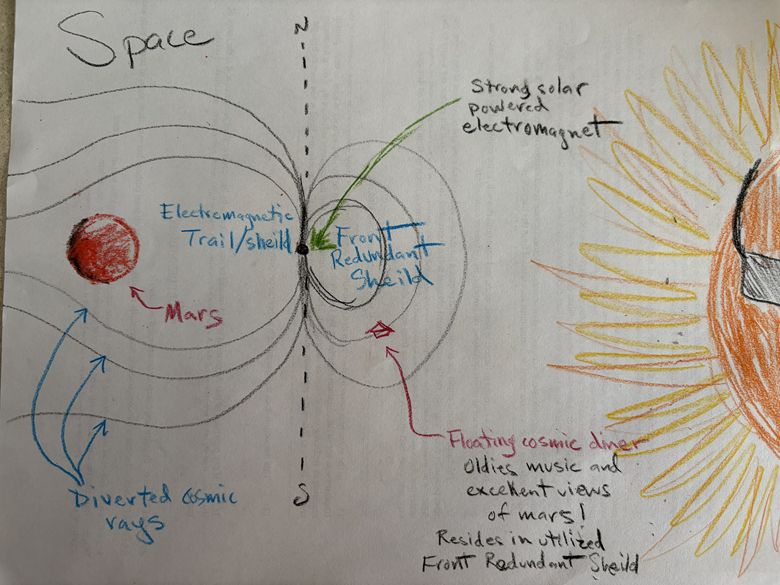 Space
N
Strong solar
powered
electromagnet
Electromagnetic
Trail/sheild
Front
Redundant
Sheild
Mars
Floating cosmic diner
Oldies music and
excellent views
of mars!
Resides in utilized
Front Redundant Sheild
S
Diverted cosmic
rays